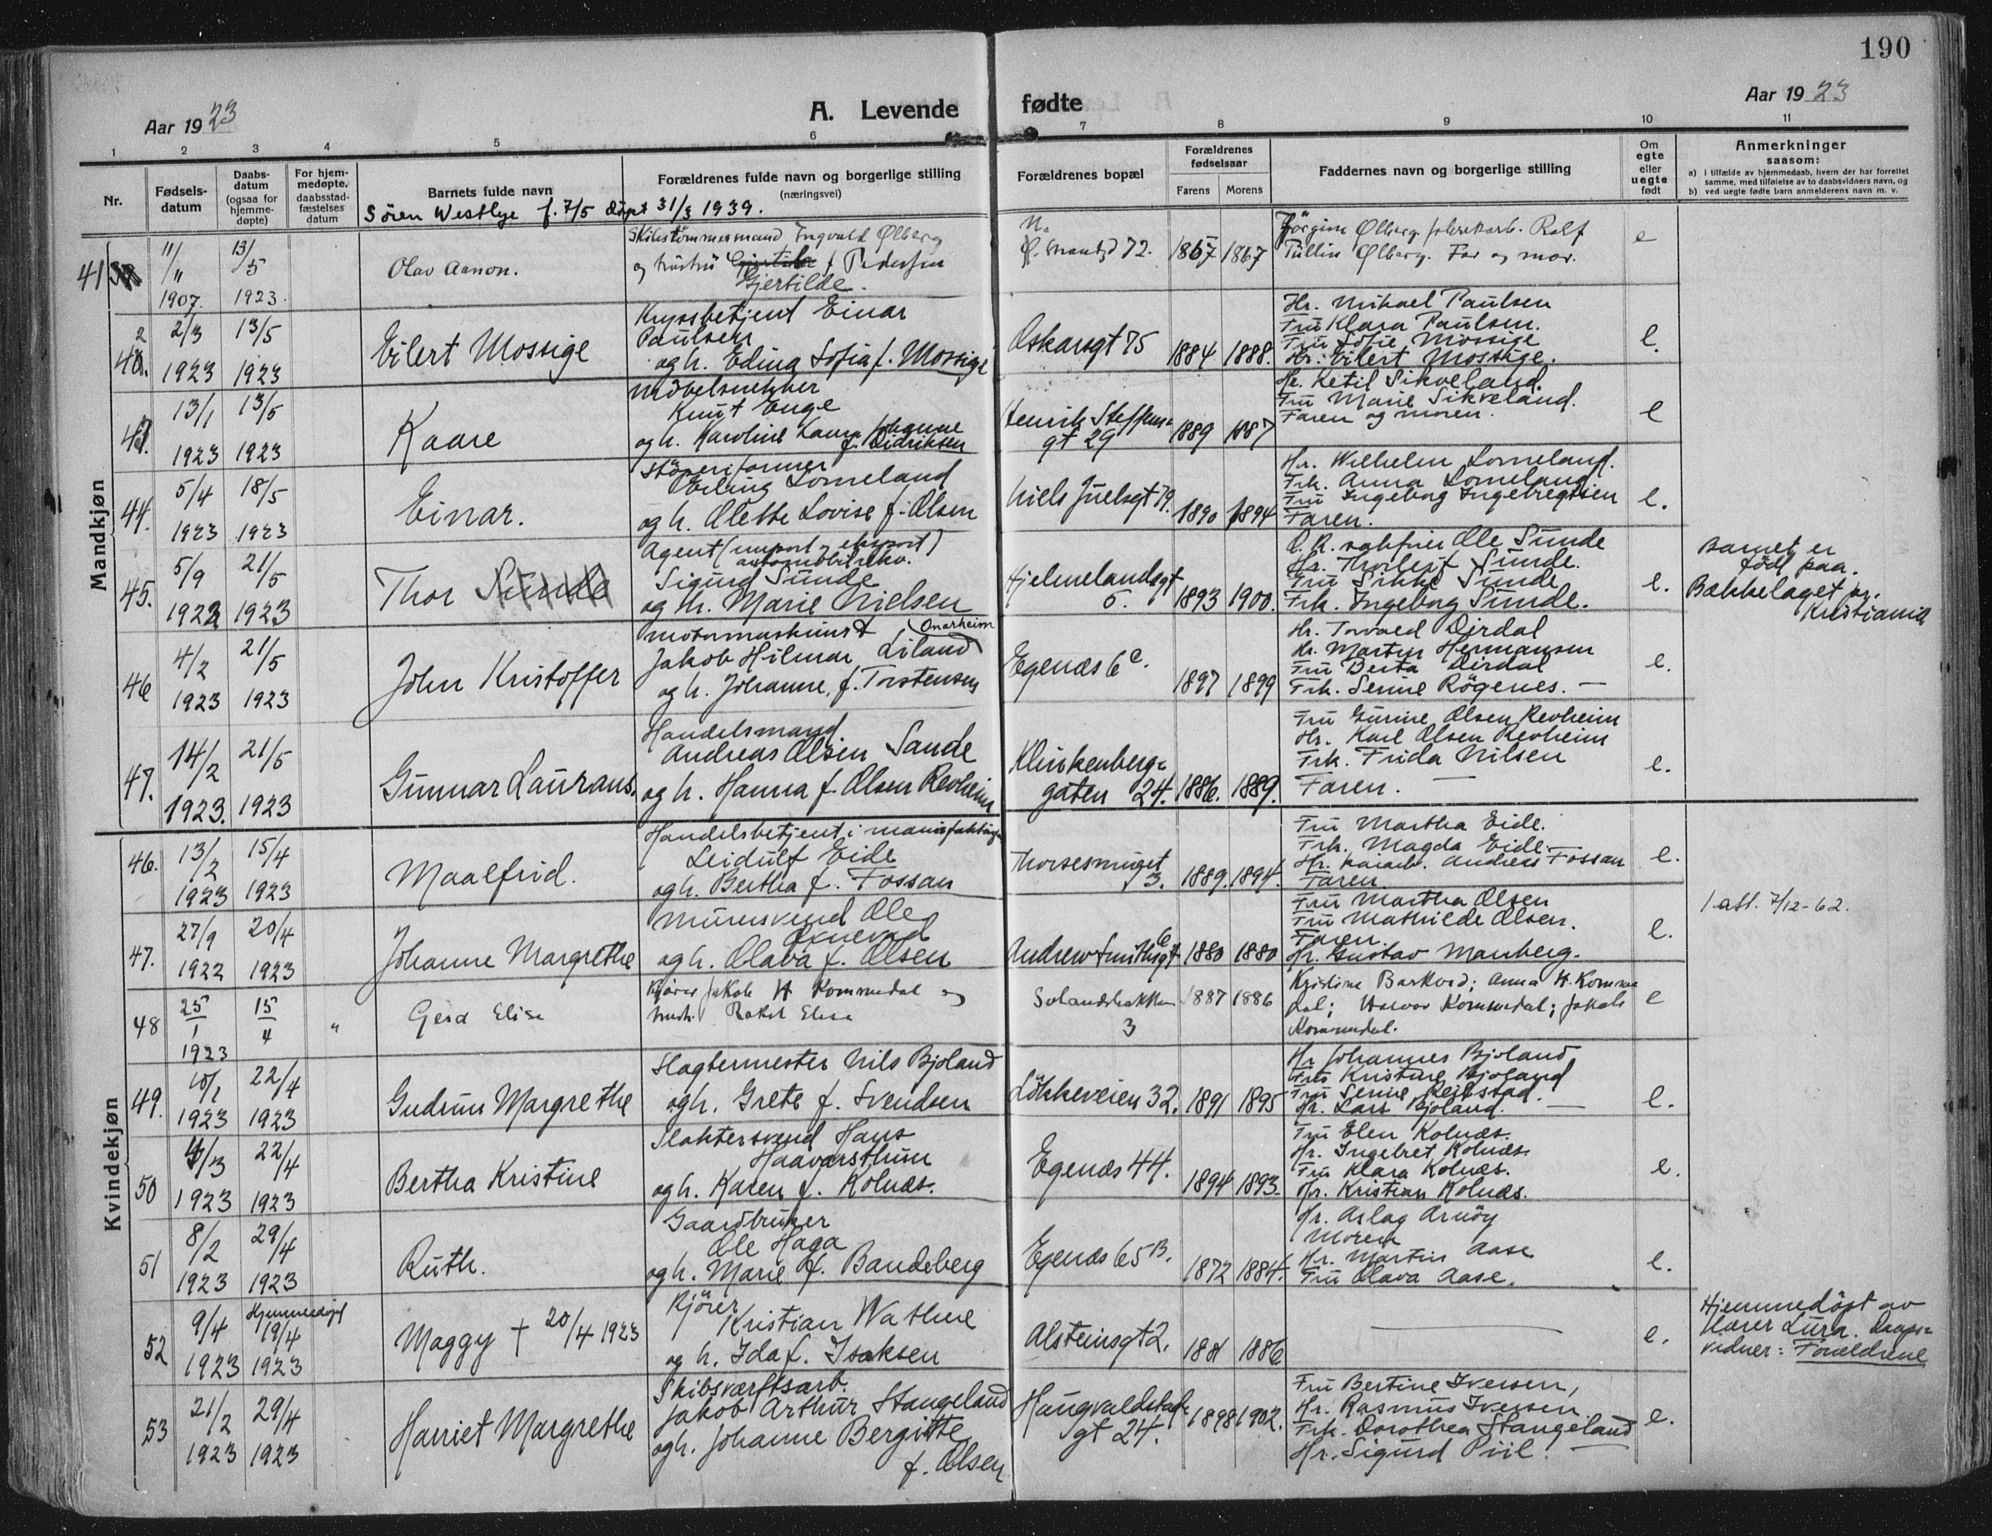 190
Aar 1923
A. Levende fødte
Aar 1923
1 2 3 4 5 6 7 8 9 10 11
Nr.
Fødsels-
datum
Daabs-
datum
(ogsaa for
hjemme-
døpte)
For hjem-
medøpte,
daabsstad-
fæstelses
datum
Barnets fulde navn
Forældrenes fulde navn og borgerlige stilling
(næringsvei)
Forældrenes bopæl
Forældrenes
fødselsaar
Farens Morens
Faddernes navn og borgerlige stilling
Om
egte
eller
uegte
født
Anmerkninger
saasom:
a) i tilfælde av hjemmedaab, hvem der har forrettet
samme, med tilføielse av to daabsvidners navn, og
b) ved uegte fødte barn anmelderens navn m. v.
Søren Westlye f. 7/5 døpt 31/3 1939.
Mandkjøn
41
11/11 1907. 13/5 1923.
Olav Aanon.
Skibstømmermand Ingvald Ølberg
og hustru f Pedersen
Gjertilde.
72. 1867 1867
Jørgine Ølberg, Rolf
Tullin Ølberg. Far og mor.
e
42.
2/3 1923 13/5 1923
Eilert Mossige
Kryssbetjent Einar
Paulsen
og h. Edina Sofia f. Mossige
Oskarsgt 75 1884 1888.
Hr. Mikael Paulsen
Fru Klara Paulsen.
Fru Sofie Mossige
Hr. Eilert Mossige.
e.
43.
13/1 1923 13/5 1923
Kaare
Møbelsnekker
Knut Enge
og h. Karoline Laura Johanne
f. Didriksen
Henrik Steffens-
gt 29 1889 1887
Hr. Ketil Sikveland.
Fru Marie Sikveland.
Faren og moren.
e
44.
5/4 1923 18/5 1923
Einar.
Støperiformer
Erling Lomeland
og h. Olette Lovise f. Olsen
Niels Juelsgt 79. 1890 1894
Hr. Wilhelm Lomeland.
Frk. Anna Lomeland
Fru Ingeborg Ingebregtsen
Faren.
e.
45.
5/9 1922 21/5 1923
Thor Sunde
Agent (import & eksport)
Sigurd Sunde
og h. Marie Nielsen
Hjelmelandsgt
6. 1893 1900.
O. R. sakfører Ole Sunde
Hr. Thorleif Sunde.
Fru Sikke Sunde
Frk. Ingeborg Sunde.
e.
Barnet er
født paa.
Bækkelaget pr.
Kristiania
46
4/2 1923 21/5 1923
John Kristoffer
Motormaskinist (Onarheim
Jakob Hilmar Liland)
og h. Johanne, f. Torstensen
Egenæs 6c. 1897 1899
Hr. Torvald Dirdal
Hr. Martin Hermansen
Fru Berta Dirdal
Frk. Serine Røgenes. —
e.
47.
14/2 1923. 21/5 1923
Gunnar Laurans.
Handelsmand
Andreas Olsen Sande
og h. Hanna f. Olsen Revheim
Klinkenberg-
gaten 24. 1886. 1889.
Fru Gurine Olsen Revheim
Hr. Karl Olsen Revheim
Frk. Frida Nilsen
Faren. —
e.
Kvindekjøn
46.
13/2 1923 15/4 1923
Maalfrid.
Handelsbetjent i manufaktur
Leidulf Eide
og h. Bertha f. Fossan
3. 1889. 1894.
Fru Martha Eide.
Frk. Magda Eide.
Hr. Andreas Fossan
Faren.
e.
47.
27/9 1922 20/4 1923
Johanne Margrethe
Murersvend Ole
og h. Olava f. Olsen
Andrew Smithsgt 6 1880 1880
Fru Martha Olsen
Fru Mathilde Olsen.
Faren.
Hr. Gustav Manberg.
e.
1 att. 7/12-62.
48
25/1 1923 15/4 "
Gerd Elise
Kjører Jakob H Kommedal og
hustr. Rakel Elise
Solandsbakken
3 1887 1886
Kristine Barkved; Anna H. Komme-
dal; Halvor Kommedal; Jakob
Kommedal.
e
49.
10/1 1923 22/4 1923
Gudrun Margrethe
Slagtermester Nils Bjoland
og h. Grete f. Svendsen
Løkkeveien 32. 1891 1895
Hr Johannes Bjoland
Frk Kristine Bjoland
Fru Serine Reilstad.
Hr. Lars Bjoland. —
e.
50
4/3 1923 22/4 1923
Bertha Kristine
Slaktersvend Hans
Haavarsthun
og h. Karen f. Kolnæs.
Egenæs 44. 1894 1893.
Fru Elen Kolnæs.
Hr. Ingebret Kolnæs
Fru Klara Kolnæs.
Hr. Kristian Kolnæs.
e.
51
8/2 1923 29/4 1923
Ruth.
Gaardbruker
Ole Haga
og h. Marie f. Bandeberg
Egenæs 65B. 1872 1884.
Hr. Aslag Arnøy
Moren
Hr. Martin Aase
Fru Olava Aase.
e.
52
9/4 1923 Hjemmedøpt 19/4 1923
Maggy † 20/4 1923
Kjører
Kristian Wathne
og h. Ida f. Isaksen
Alsteinsgt 2. 1881 1886
—
e.
Hjemmedøpt av
Lærer Lura. Daaps-
vidner: Forældrene
53
21/2 1923 29/4 1923
Harriet Margrethe
Skibsværftsarb.
Jakob Arthur Stangeland
og h. Johanne Bergitte
f. Olsen
Haugvaldstads
gt 24. 1898 1902.
Fru Bertine Iversen,
Hr. Rasmus Iversen
Frk. Dorothea Stangeland
Hr. Sigurd Piil. —
e.